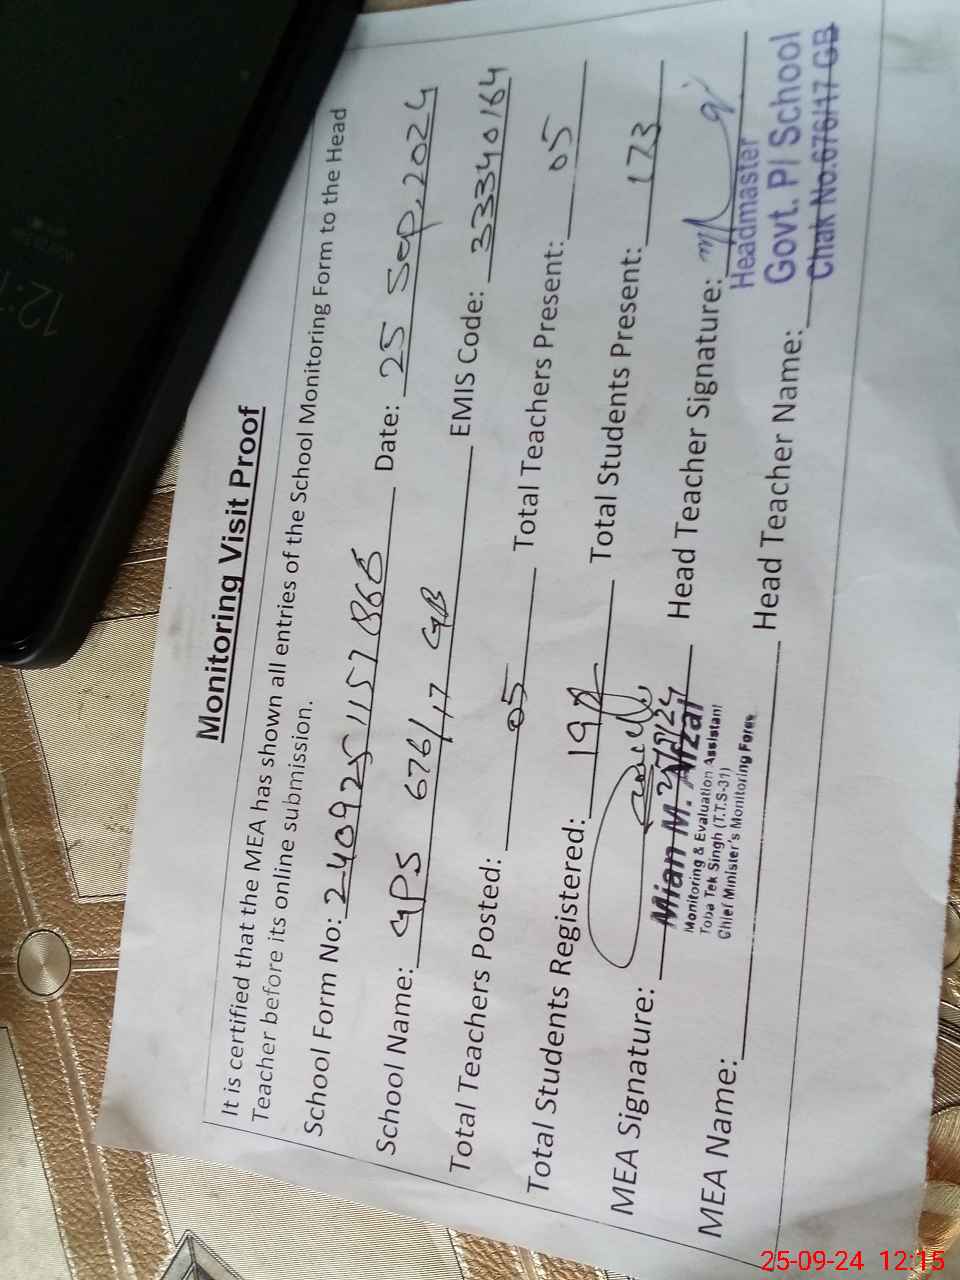 Monitoring Visit Proof
It is certified that the MEA has shown all entries of the School Monitoring Form to the Head
Teacher before its online submission.
School Form No: 24092511571866 Date: 25 Sep, 2024
School Name: GPS 676/17 GB EMIS Code: 33340164
Total Teachers Posted: 05 Total Teachers Present: 05
Total Students Registered: Total Students Present: 173
MEA Signature: Head Teacher Signature:
Mian M. Afzal
Monitoring & Evaluation Assistant
Toba Tek Singh (T.T.S-31)
Chief Minister's Monitoring Force
Headmaster
Govt. P/ School
Chak No.676/17 GB
MEA Name: Head Teacher Name:
12:1
25-09-24 12:15